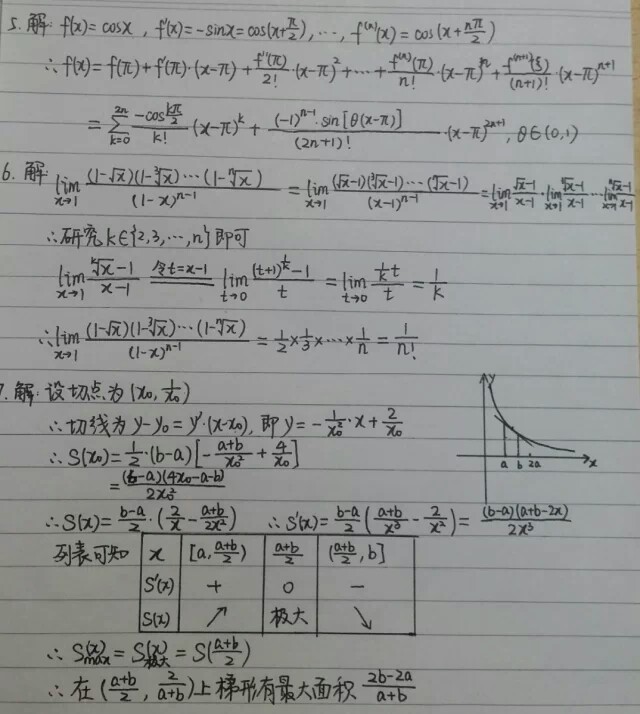 5. 解: f(x)=cosx, f'(x)=-sinx=cos(x+π/2), ⋯, f⁽ⁿ⁾(x)=cos(x+nπ/2)
∴f(x)=f(π)+f'(π)·(x-π)+f''(π)/2!·(x-π)²+⋯+f⁽ⁿ⁾(π)/n!·(x-π)ⁿ+f⁽ⁿ⁺¹⁾(ξ)/(n+1)!·(x-π)ⁿ⁺¹
=∑_{k=0}^{2n} (-cos(kπ/2))/k!·(x-π)ᵏ+((-1)ⁿ⁻¹·sin[θ(x-π)])/(2n+1)!·(x-π)²ⁿ⁺¹, θ∈(0,1)
6. 解: lim_{x→1} ((1-√x)(1-∛x)⋯(1-ⁿ√x))/(1-x)ⁿ⁻¹=lim_{x→1} ((√x-1)(∛x-1)⋯(ⁿ√x-1))/(x-1)ⁿ⁻¹=lim_{x→1} (√x-1)/(x-1)·lim_{x→1} (∛x-1)/(x-1)⋯lim_{x→1} (ⁿ√x-1)/(x-1)
∴研究k∈{2,3,⋯,n}即可
lim_{x→1} (ᵏ√x-1)/(x-1) 令t=x-1 = lim_{t→0} ((t+1)^{1/k}-1)/t=lim_{t→0} (1/k t)/t=1/k
∴lim_{x→1} ((1-√x)(1-∛x)⋯(1-ⁿ√x))/(1-x)ⁿ⁻¹=1/2×1/3×⋯×1/n=1/n!
7. 解: 设切点为(x₀, 1/x₀)
∴切线为y-y₀=y'·(x-x₀), 即y=-1/x₀²·x+2/x₀
∴S(x₀)=1/2·(b-a)[-(a+b)/x₀²+4/x₀]
=((b-a)(4x₀-a-b))/2x₀²
y
a b 2a x
∴S(x)=(b-a)/2·(2/x-(a+b)/2x²) ∴S'(x)=(b-a)/2((a+b)/x³-2/x²)=((b-a)(a+b-2x))/2x³
列表可知 x [a,(a+b)/2) (a+b)/2 ((a+b)/2,b]
S'(x) + 0 -
S(x) ↗ 极大 ↘
∴S(x)max=S(x)极大=S((a+b)/2)
∴在((a+b)/2, 2/(a+b))上梯形有最大面积 (2b-2a)/(a+b)